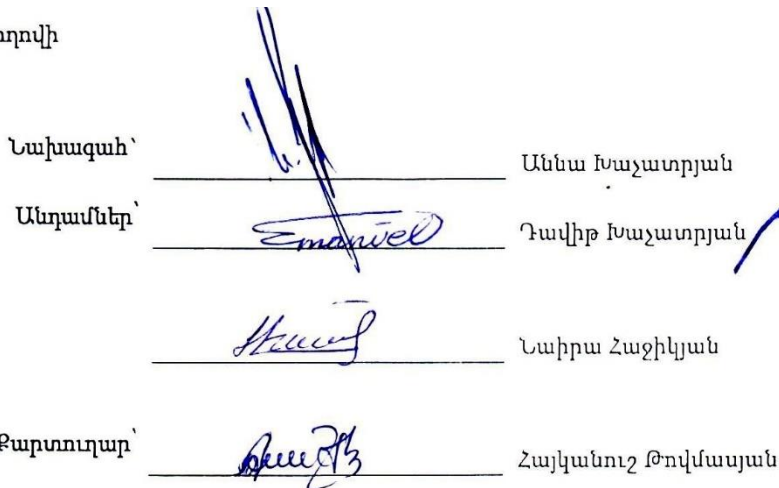 ողովի
Նախագահ՝ Աննա Խաչատրյան
Անդամներ՝ Emanuel Դավիթ Խաչատրյան
Նաիրա Հաջիկյան
Քարտուղար՝ Հայկանուշ Թովմասյան